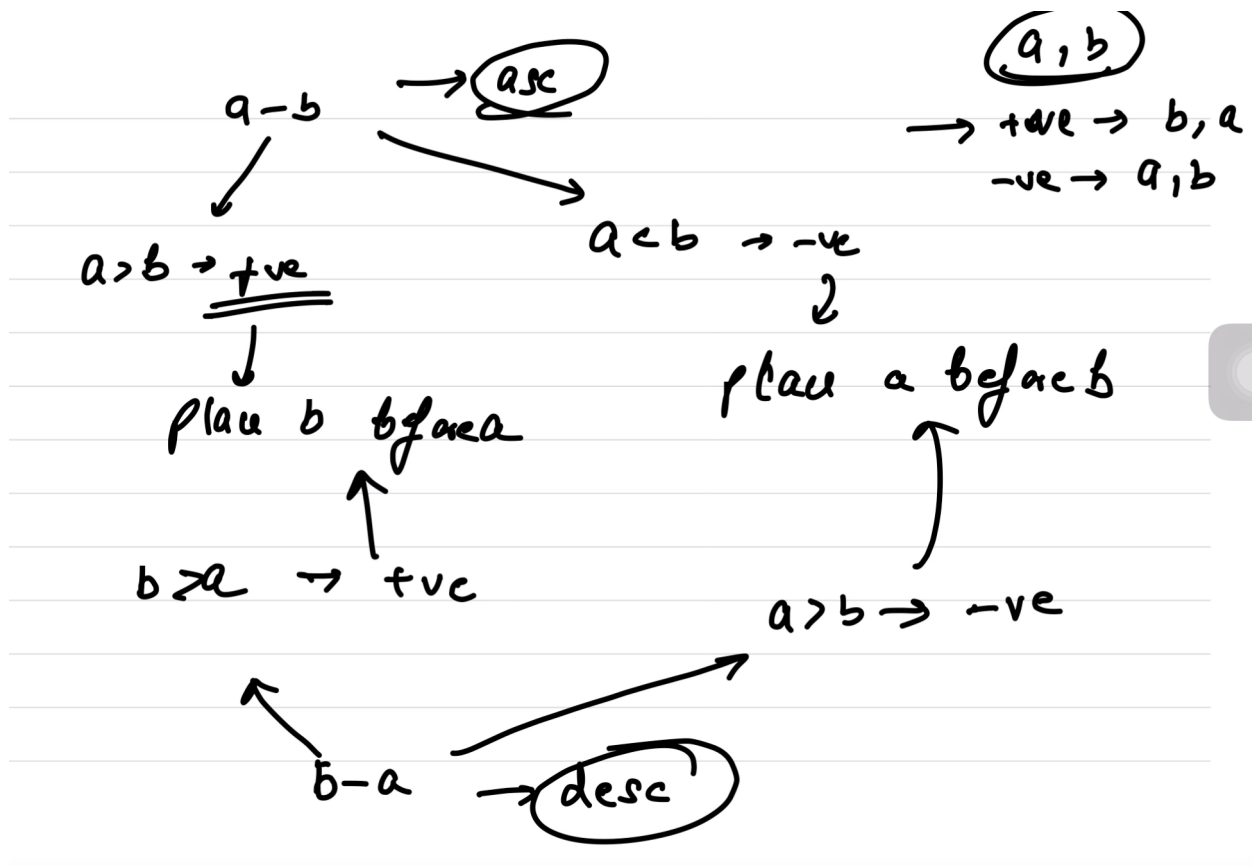 a, b
a-b → asc
→ +ve → b, a
-ve → a, b
a>b → +ve
a<b → -ve
place b before a
place a before b
b>a → +ve
a>b → -ve
b-a → desc